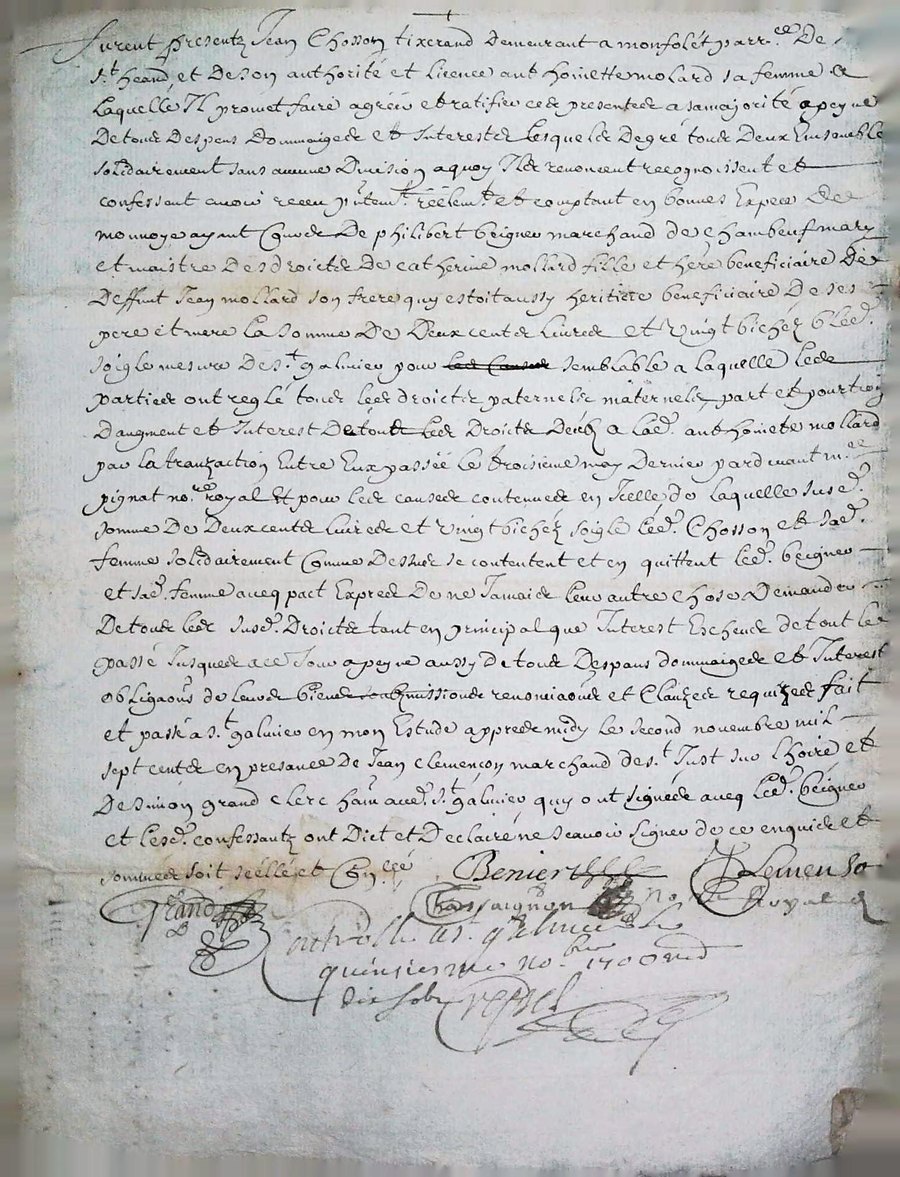 Furent presentz Jean Chosson tixerand demeurant a monfolét parr.ce De
s.t heand et De son authorité et licence anthoinette molard sa femme a
Laquelle Il promet faire agréer et ratiffier ces presentes a sa majorité a peyne
De tous Despens Dommaiges et Interests Lesquels De gré tous Deux Ensemble
solidairement sans aucune Division a quoy Ils renoncent recognoissent et
confessent avoir receu p̃ntem.t réelem.t et comptant en bonnes Especes de
monnoye ayant Cours De philibert beignier marchand de Chambeuf mary
et maistre Des droicts De catherine mollard fille et hére beneficiaire De
Deffunt Jean mollard son frere quy estoit aussy heritiere beneficiaire De ses
pere et mere La somme De Deux cents Livres et Vingt bichéz bled.
soigle mesure De s.t galmier pour les causes semblable a laquelle lesd.
parties ont reglé tous lesd. droicts paternels maternels, part et portion
D'augment et Interest De tous lesd. Droicts Deubz a lad. anthoinete mollard
par la tranzaction Entre Eux passée Le troisieme may Dernier pardevant m.re
pignat no.re royal Et pour les causes contenues en Icelle, de Laquelle susd.
somme De Deux cents livres et vingt bichéz soigle led. Chosson et sad.
femme solidairement Comme Dessus se contentent et en quittent led. beignier
et sad. femme avecq pact Expres De ne Jamais leur autre chose Demander
De tous lesd. susd. Droicts tant en principal que Interest Escheus de tout le
passé Jusques a ce Jour a peyne aussy de tous Despans dommaiges et Interest
obligaõns de leurs biens soubzmissions renonciaõns et Clauzes requizes fait
et passé a s.t galmier en mon Estude appres midy le second novembre mil
sept cents en presance De Jean clemencon marchand de s.t Just sur Lhoire et
De simon grand clerc ham aud. s.t galmier quy ont signées avecq led. beignier
et lesd. confessantz ont Dict et Declairé ne scavoir signer de ce enquis et
sommes soit scéllé et Con.llé
Benier Clemenso
Grand Chassaignon No.re Royal
Controllé a s.t galmier le
quinsiesme no.bre 1700 recd
dix sols